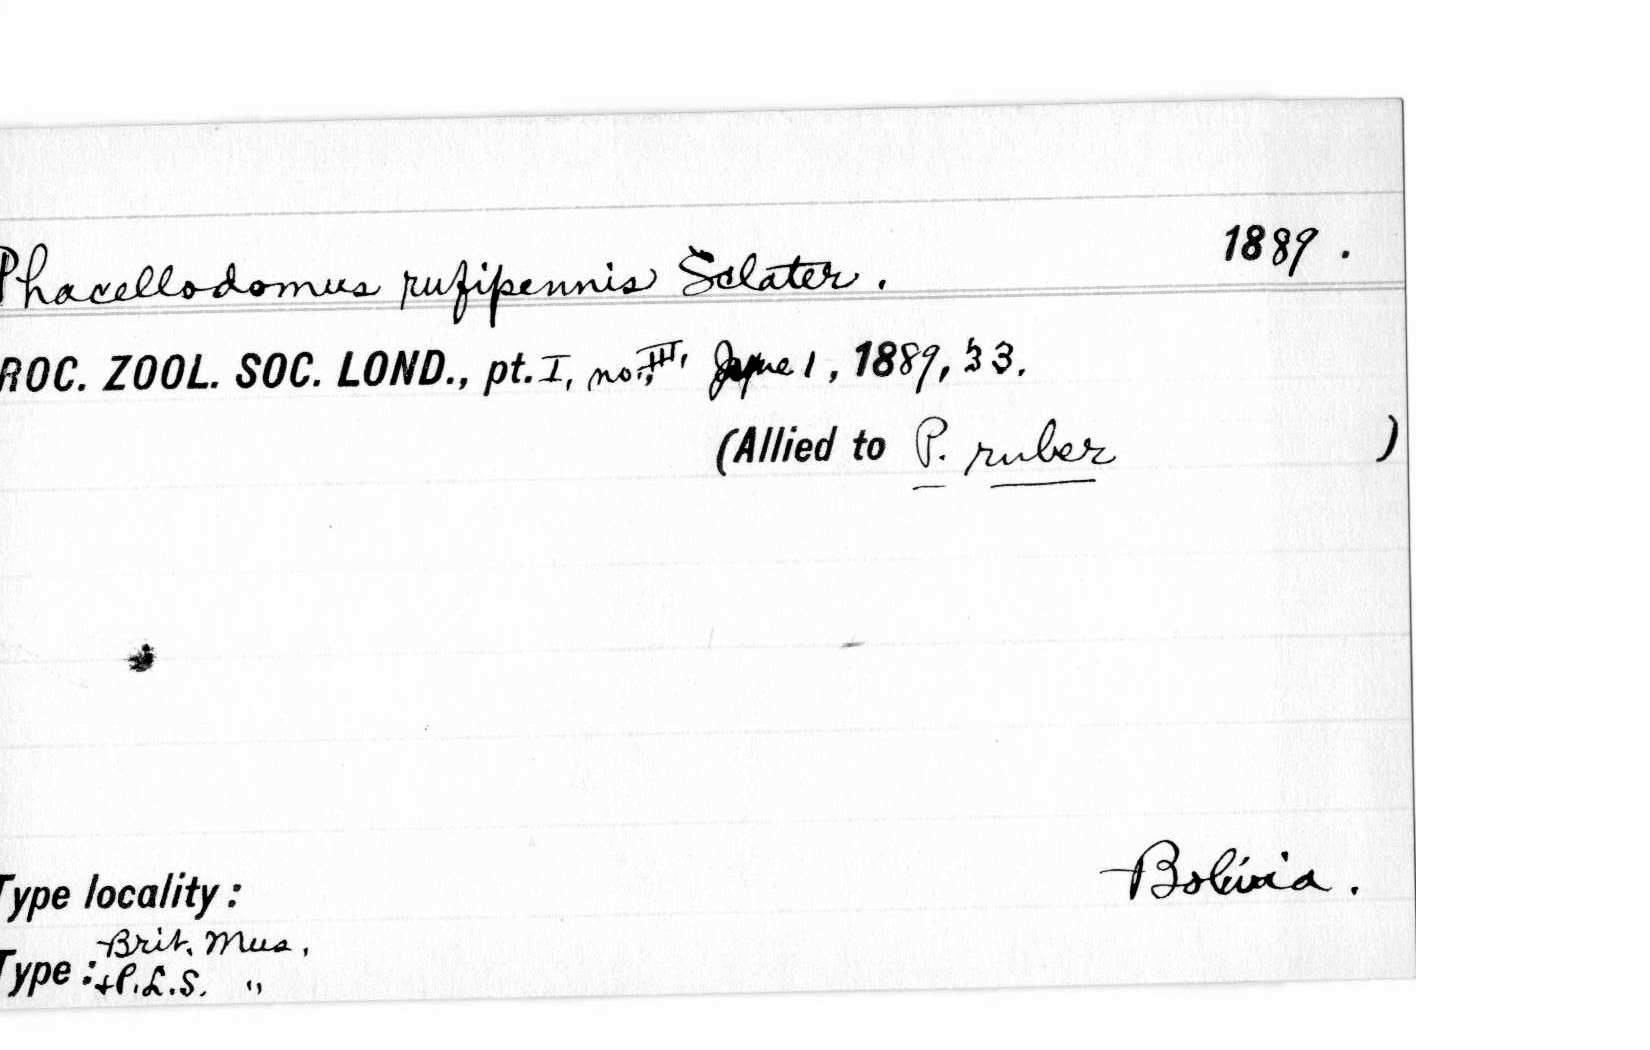 Phacellodomus rufipennis Sclater. 1889.
ROC. ZOOL. SOC. LOND., pt. I, no. III, June 1, 1889, 33.
(Allied to P. ruber )
Type locality: Bolivia.
Brit. Mus.
Type: +P.L.S. "